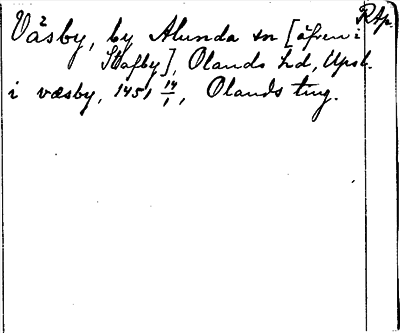 RAp.
Väsby, by Alunda sn [äfven i
Stafby], Olands hd, Upsl.
i væsby, 1451 14/1, Olands ting.